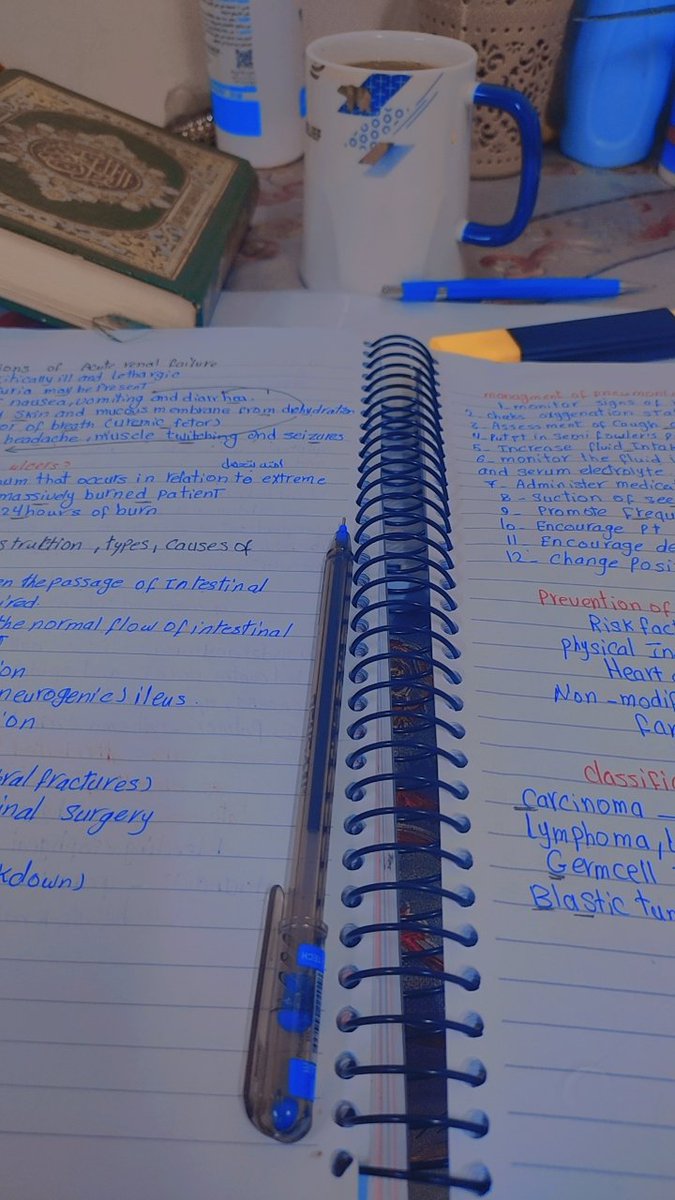 ions of Acute renal failure
critically ill and lethargic
uria may be Present
nausea, vomiting and diarrhea.
Skin and mucous membrane from dehydration
or of breath (uremic fetor)
headache, muscle twitching and seizures.
ulcers?
um that occurs in relation to extreme
massively burned patient
24 hours of burn
struktion, types, causes of
en the passage of Intestinal
ired.
the normal flow of intestinal
ion
neurogenic) ileus.
ion
ral fractures)
inal surgery
kdown)
managment of pneumoni
1- monitor signs of
2- cheke oxygenation sta
3- Assessment of Cough
4- Put Pt in Semi fowler's P
5- Increase fluid Intak
6- monitor the fluid
and serum electrolyte
7- Administer medica
8- Suction of see
9- Promote frequ
10- Encourage Pt
11- Encourage de
12- Change Posi
Prevention of
Risk fac
physical In
Heart
Non-modif
far
classific
Carcinoma
lymphoma, L
Germcell
Blastic tum
TECH